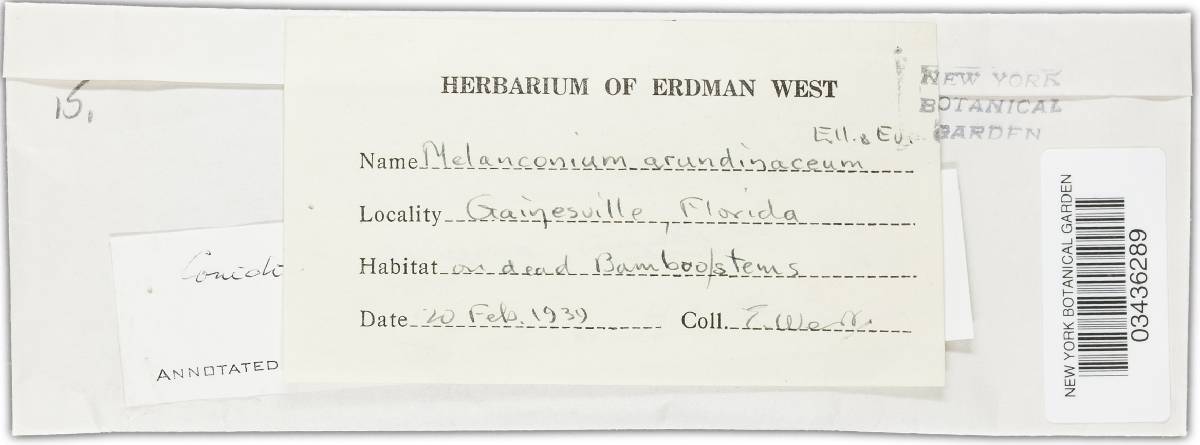 15.
HERBARIUM OF ERDMAN WEST
NEW YORK
BOTANICAL
GARDEN
Ell. & Ev.
Name Melanconium arundinaceum
Locality Gainesville, Florida
Habitat on dead Bamboo stems
Date 20 Feb. 1939 Coll. E. West
Conidi
ANNOTATED
NEW YORK BOTANICAL GARDEN
03436289